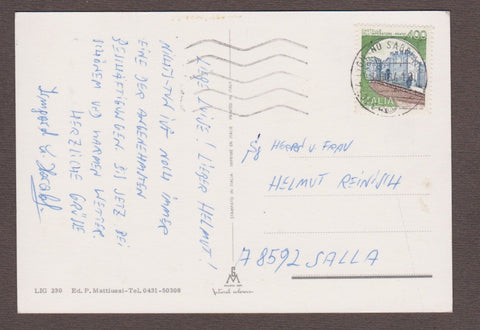 LIEBE LUISE! LIEBER HELMUT!
NICHTSTUN IST NOCH IMMER
EINE DER ANGENEHMSTEN
BESCHÄFTIGUNGEN BIS JETZ BEI
SCHÖNEM UND WARMEN WETTER.
HERZLICHE GRÜßE
Irmgard &
STAMPATO IN ITALIA
400
ITALIA
HERRN U FRAU
HELMUT
A 8592 SALLA
LIG 230 Ed. P. Mattiussi-Tel. 0431-50308